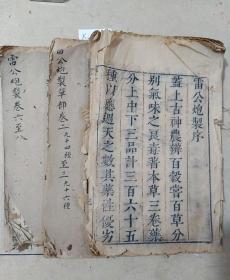 雷公炮製序
蓋上古神農辨百穀嘗百草分
別氣味之良毒著本草三卷藥
分上中下三品計三百六十五
種以應週天之數其藥性優劣
雷公炮製草部卷二九十四種至三九十六種
雷公炮製卷六至八